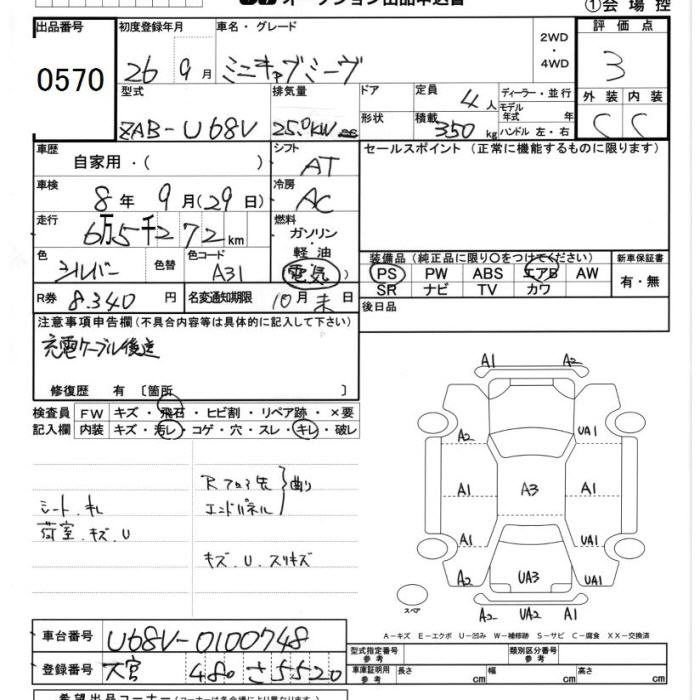 オークション出品申込書 ①会場控
出品番号 初度登録年月 車名・グレード 2WD・4WD 評価点
0570 26年 9月 ミニキャブミーヴ 3
型式 排気量 ドア 定員 4人 ディーラー・並行 外装 内装
ZAB-U68V 25.0KW 形状 積載 350kg モデル年式 年 ハンドル 左・右 C C
車歴 自家用・( ) シフト AT セールスポイント (正常に機能するものに限ります)
車検 8年 9月(29日) 冷房 AC
走行 6万5千272km 燃料 ガソリン・軽油 電気)
色 シルバー 色替 色コード A31
装備品 (純正品に限り○をつけてください) 新車保証書
PS PW ABS エアB AW 有・無
SR ナビ TV カワ
R券 8.340円 名変通知期限 10月末日 後日品
注意事項申告欄(不具合内容等は具体的に記入して下さい)
充電ケーブル後送
修復歴 有 〔箇所
検査員 FW キズ・飛石・ヒビ割・リペア跡・×要
記入欄 内装 キズ・汚レ・コゲ・穴・スレ・キレ・破レ
A1 A2
A2 UA1
A1 A3 A1
A1 UA1
A2 UA3 UA1
A2 UA2 A1
スペア
シート.キレ
荷室.キズ.U
エンドパネル 曲り
キズ.U.スリキズ
A-キズ E-エクボ U-凹み W-補修跡 S-サビ C-腐食 XX-交換済
車台番号 U68V-0100748 型式指定番号 参考 類別区分番号 参考
登録番号 大宮 480 さ 5520 車庫証明用 参考 長さ cm 幅 cm 高さ cm
希望出品コーナー